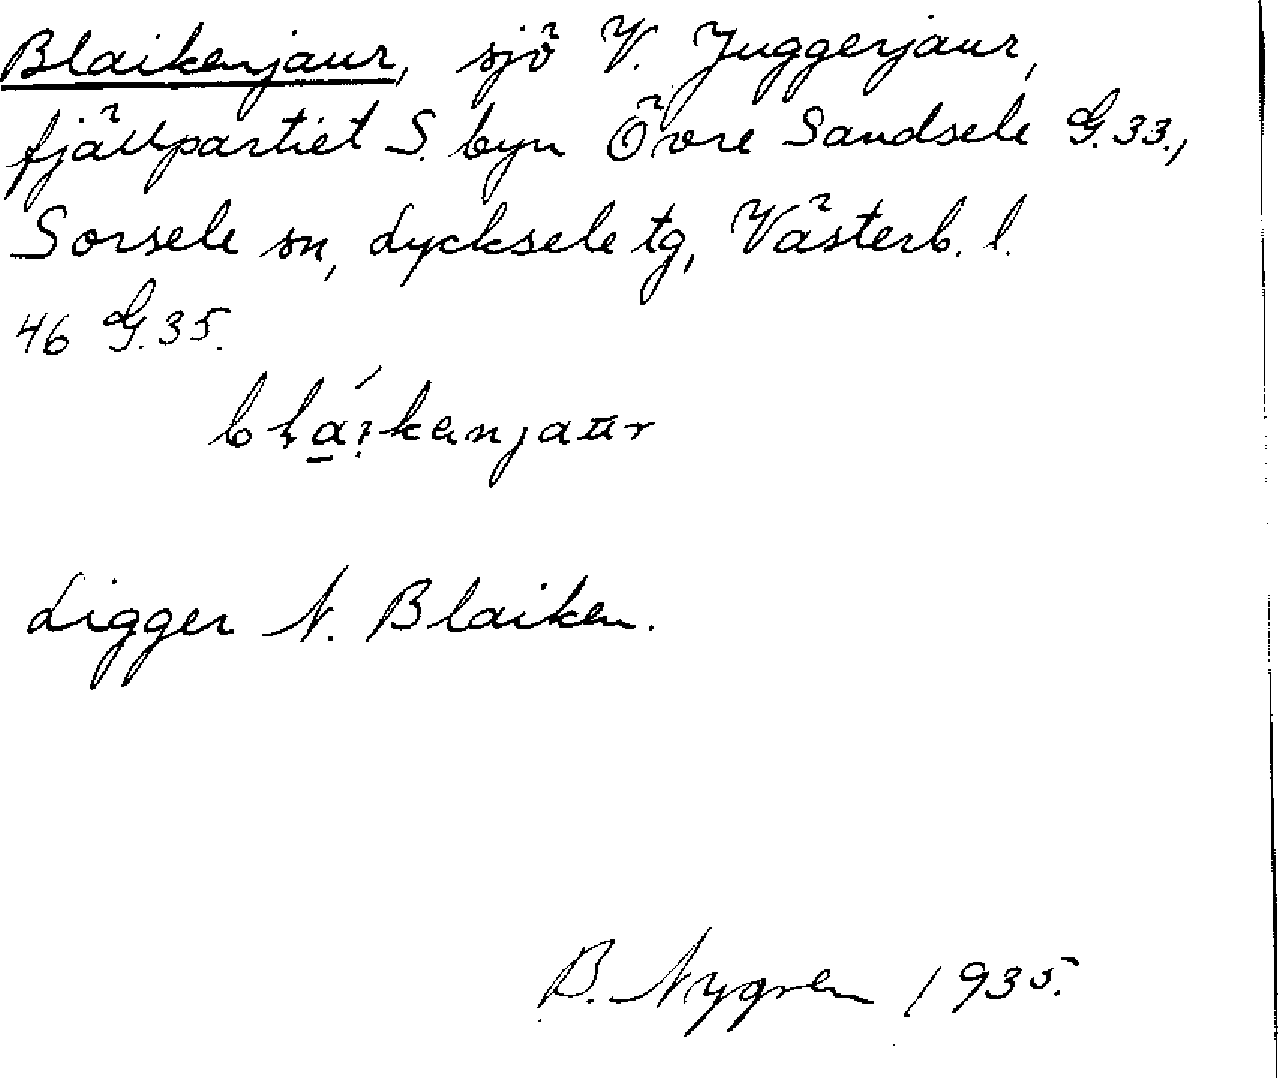 Blaikenjaur, sjö V. Juggerjaur,
fjällpartiet S. byn Övre Sandsele G.33.,
Sorsele sn, Lycksele tg, Västerb. l.
46 G.35.
Ligger N. Blaiken.
B. Nygren 1935.